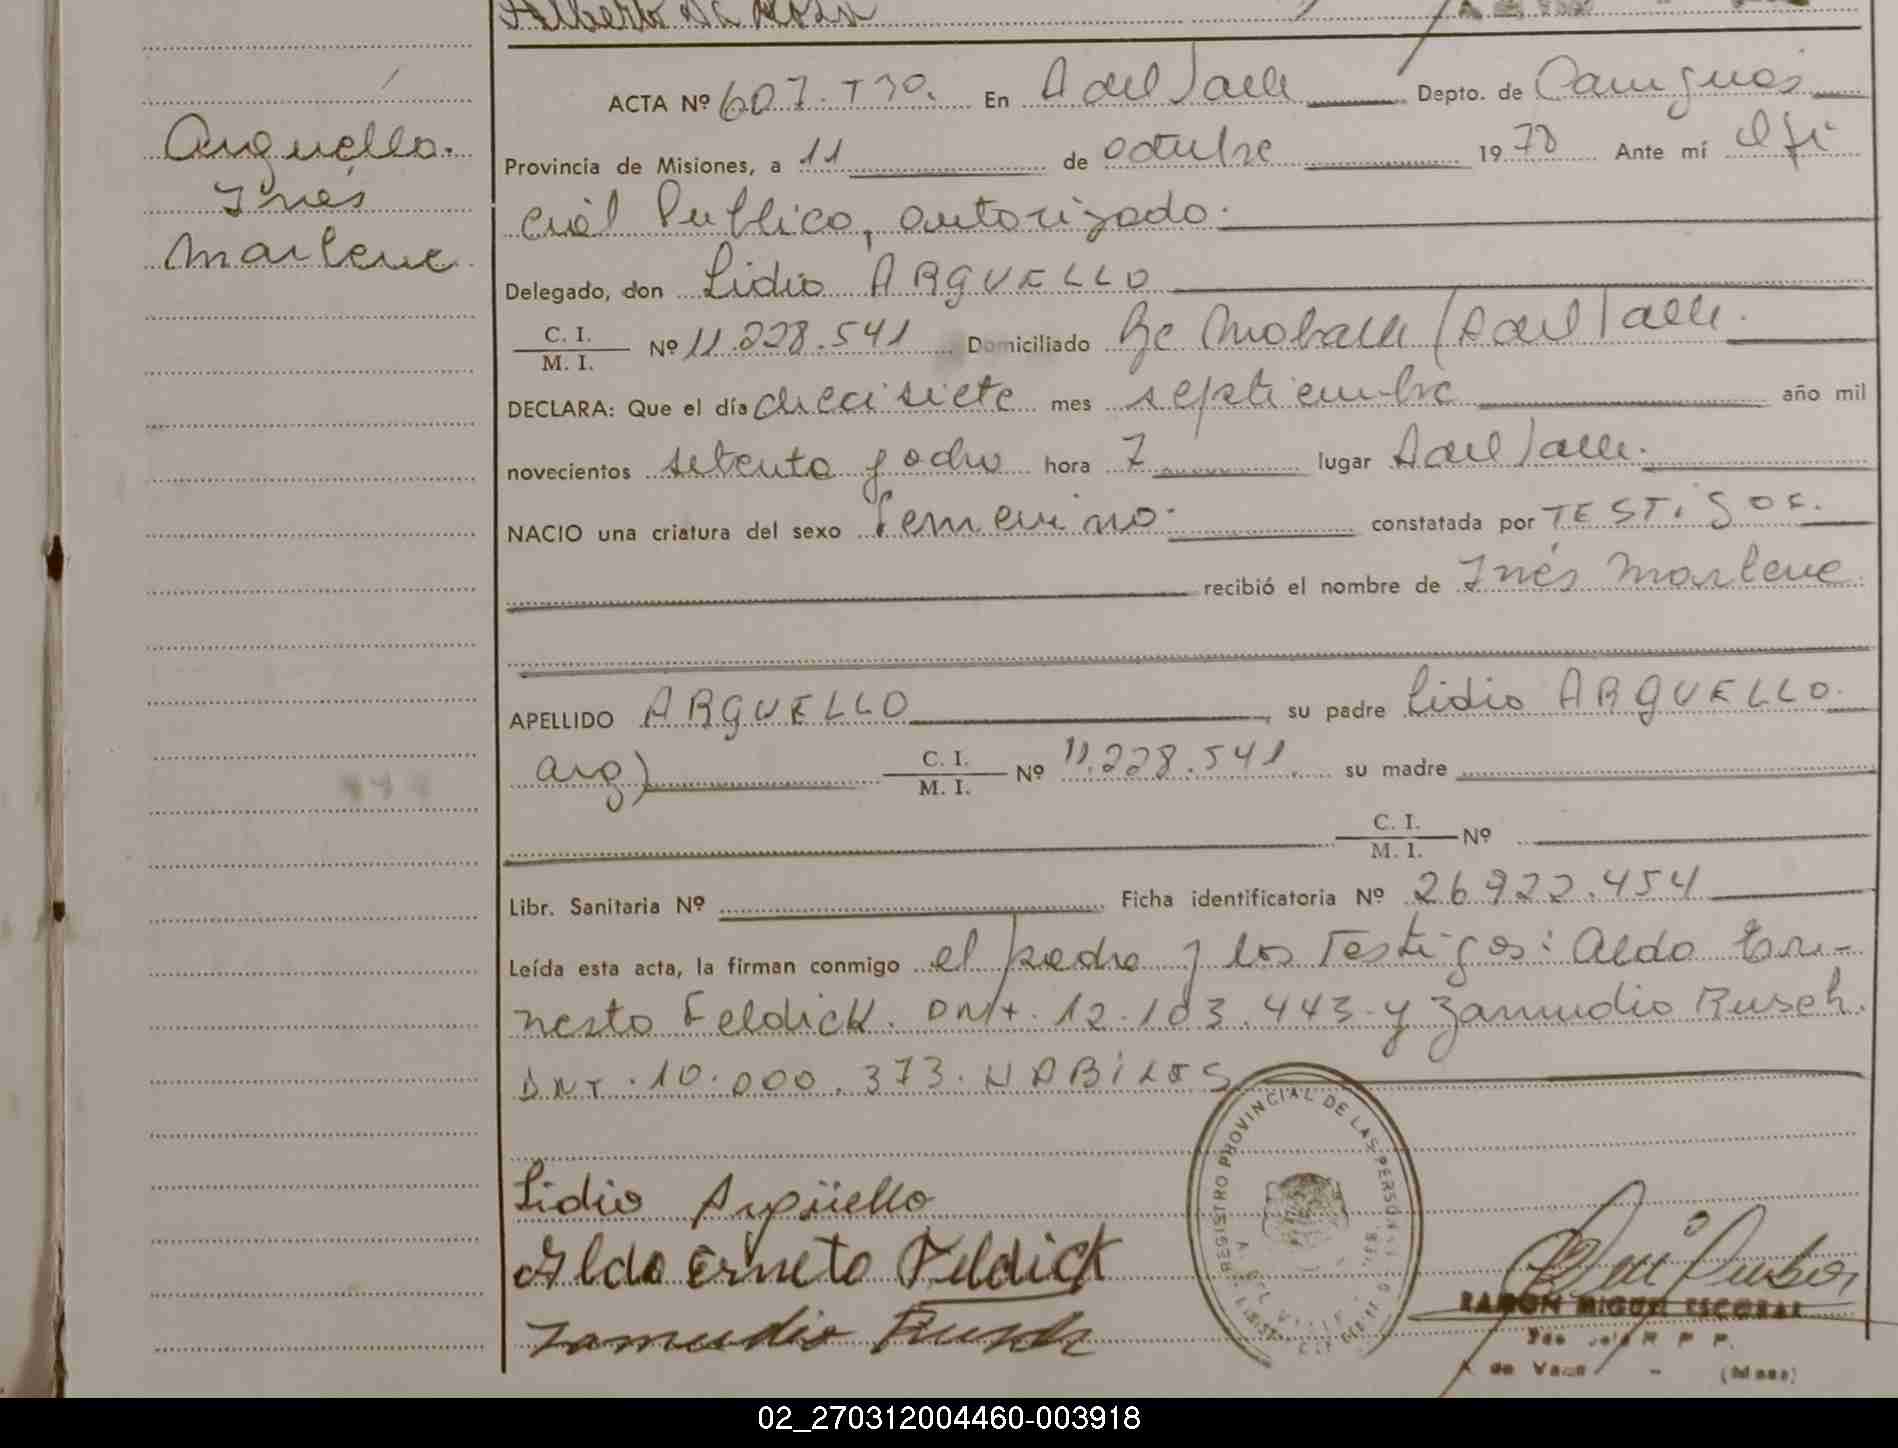 Arguello.
Inés
Marlene
ACTA Nº 607. Tº. En A del Valle Depto. de Cainguás
Provincia de Misiones, a 11 de octubre 1978 Ante mí Ofi
cial Publico, autorizado.
Delegado, don Lidio ARGUELLO
C. I.
M. I. Nº 11.228.541 Domiciliado
DECLARA: Que el día diecisiete mes septiembre año mil
novecientos setenta y ocho hora 7 lugar A del Valle.
NACIO una criatura del sexo Femenino. constatada por TESTIGOS.
recibió el nombre de Inés Marlene
APELLIDO ARGUELLO, su padre Lidio ARGUELLO.
arg) C. I.
M. I. Nº 11.228.541. su madre
C. I.
M. I. Nº
Libr. Sanitaria Nº Ficha identificatoria Nº 26.922.454
Leída esta acta, la firman conmigo el padre y los Testigos: Aldo Er-
nesto Feldick. DNI. 12.103.443. y Zamudio Rusch.
DNI. 10.000.373. HABILES
Lidio Argüello
Aldo Erneto Feldick
Zamudio Rusch
REGISTRO PROVINCIAL DE LAS PERSONAS
RAMON MIGUEL ESCOBAR
02_270312004460-003918